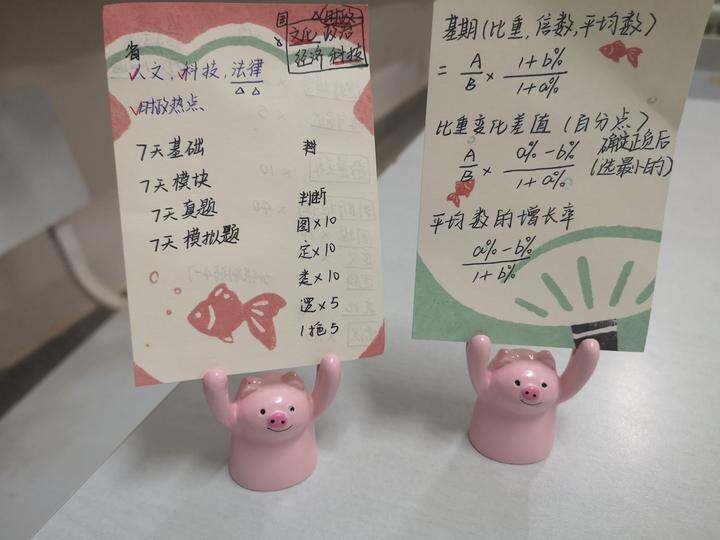 国 时政
文化 政治
经济 科技
省
人文,科技,法律
时政热点
7天基础
7天模块
7天真题
7天模拟题
判断
图×10
定×10
类×10
逻×5
基期(比重,倍数,平均数)
= A/B × 1+b%/1+a%
比重变化差值(百分点)
A/B × a%-b%/1+a%
确定正负后
(选最小的)
平均数的增长率
a%-b%/1+b%